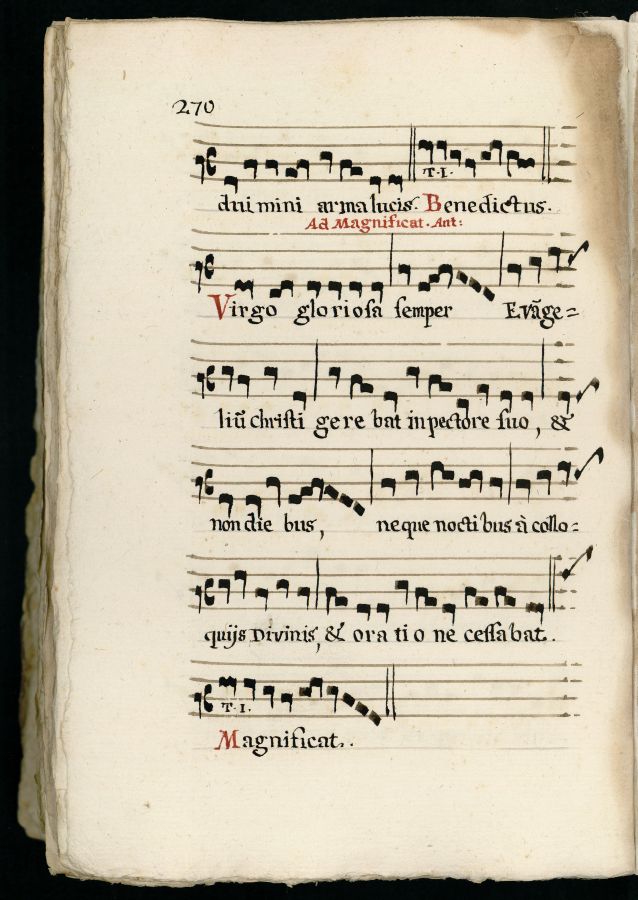 270
T. I.
duimini arma lucis. Benedictus.
Ad Magnificat. Ant:
Virgo gloriosa semper Evãge=
liũ christi gerebat in pectore suo, &
non die bus, neque noctibus à collo=
quijs Divinis, & oratione cessabat.
T. I.
Magnificat.